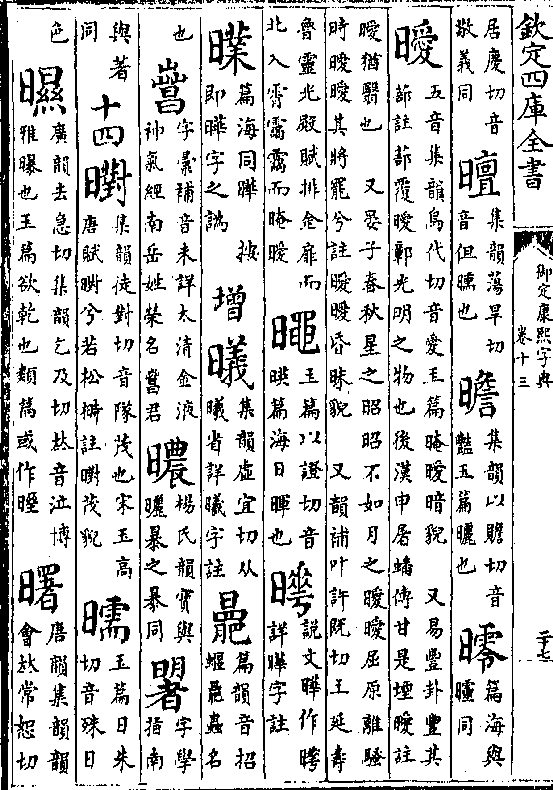 欽定四庫全書
御定康熙字典
卷十三
二十七
居慶切音
敬義同
集韻蕩旱切
音但㬤也
曕
集韻以贍切音
豔玉篇曬也
篇海與
同
曖
五音集韻烏代切音愛玉篇晻曖暗貌 又易豐卦豐其
蔀註蔀覆曖鄣光明之物也後漢申屠蟠傳甘是堙曖註
曖猶翳也 又晏子春秋星之昭昭不如月之曖曖屈原離騷
時曖曖其將罷兮註曖曖昏昧貌 又韻補叶許旣切王延壽
魯靈光殿賦排金扉而
北入霄靄靄而晻曖
玉篇以證切音
篇海日暉也
說文曄作
詳曄字註
㬪
篇海同曄 按
即曄字之譌
增
㬢
集韻虛宜切从
曦省詳曦字註
篇韻音招
蝘鼂蟲名
也
字彙補音未詳太清金液
神氣經南岳姓榮名 君
楊氏韻寶與
暴之暴同
字學
指南
與著
同
十四
㬣
集韻徒對切音隊茂也宋玉高
唐賦㬣兮若松榯註㬣茂貌
曘
玉篇日朱
切音殊日
色
㬤
廣韻去急切集韻乞及切𠀤音泣博
雅曝也玉篇欲乾也類篇或作
曙
唐韻集韻韻
會𠀤常恕切